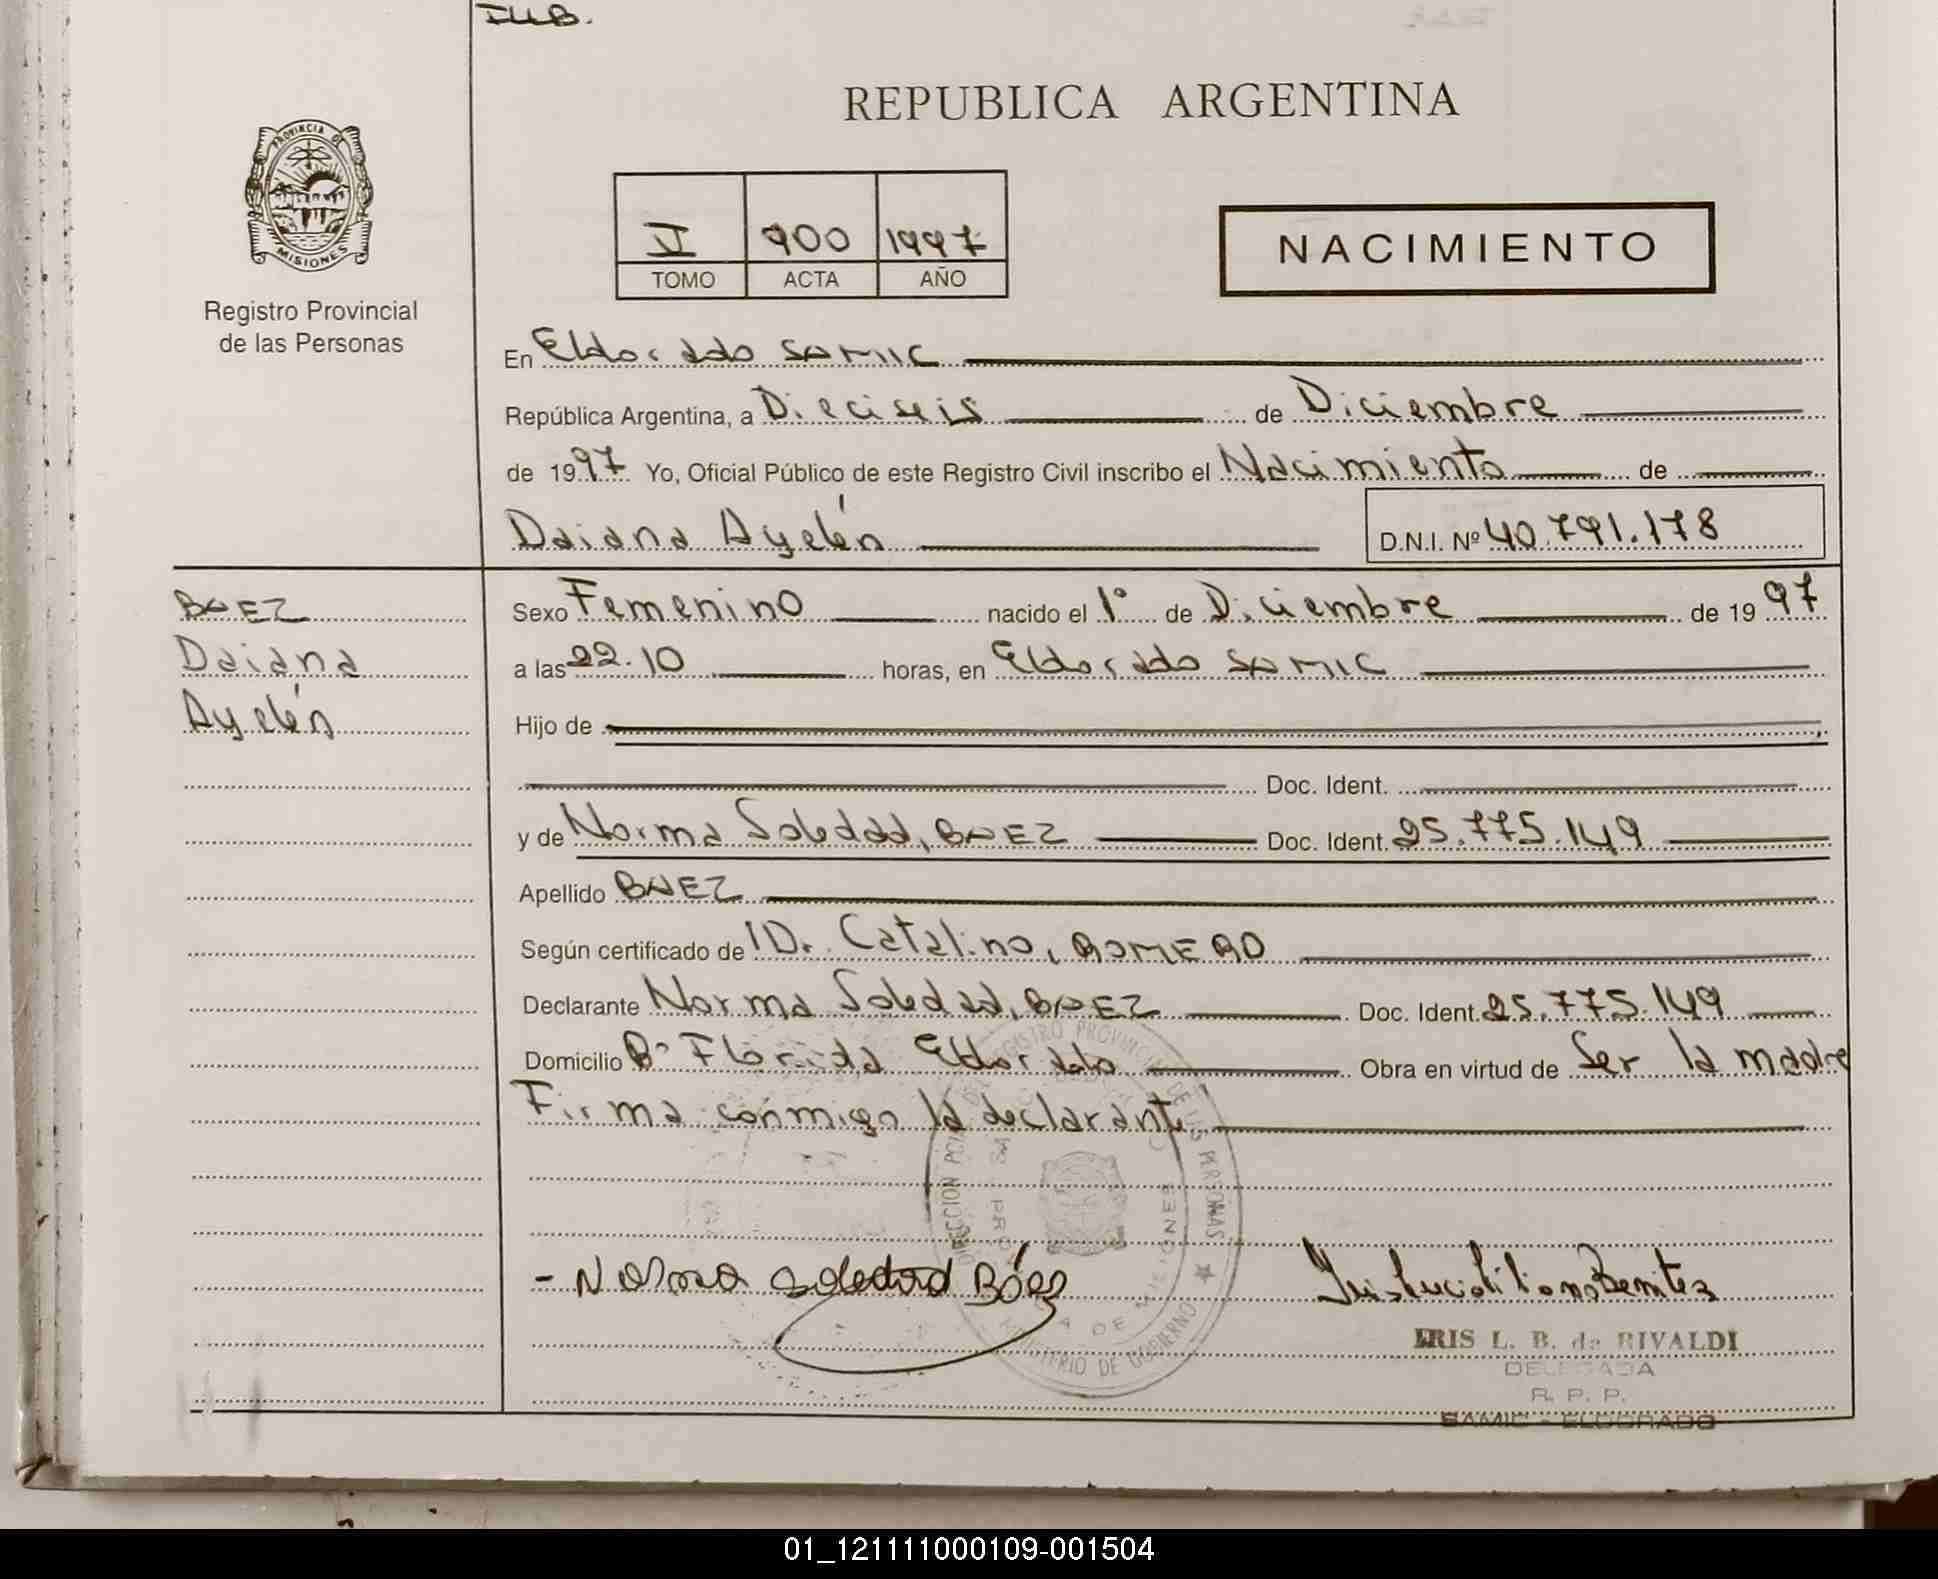 ILB.
PROVINCIA DE
MISIONES
Registro Provincial
de las Personas
REPUBLICA ARGENTINA
II 900 1997
TOMO ACTA AÑO
NACIMIENTO
En Eldorado SAMIC
República Argentina, a Dieciseis de Diciembre
de 1997 Yo, Oficial Público de este Registro Civil inscribo el Nacimiento de
Daiana Ayelén D.N.I. Nº 40.791.178
BAEZ
Daiana
Ayelén
Sexo Femenino nacido el 1º de Diciembre de 1997
a las 22.10 horas, en Eldorado SAMIC
Hijo de
Doc. Ident.
y de Norma Soledad, BAEZ Doc. Ident. 25.775.149
Apellido BAEZ
Según certificado de ID. Catalino, ROMERO
Declarante Norma Soledad, BAEZ Doc. Ident. 25.775.149
Domicilio Bº Florida Eldorado Obra en virtud de Ser la madre
Firma conmigo la declarante
REGISTRO PROVINCIAL DE LAS PERSONAS
MINISTERIO DE GOBIERNO
DE MISIONES
- Norma Soledad Báez
IRIS L. B. de RIVALDI
DELEGADA
R. P. P.
SAMIC - ELDORADO
01_121111000109-001504